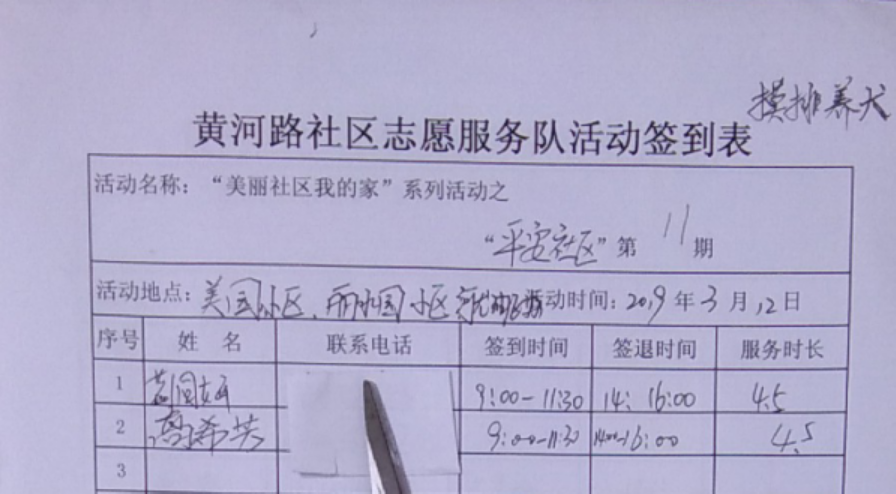 摸排养犬
黄河路社区志愿服务队活动签到表
活动名称：“美丽社区我的家”系列活动之
“平安社区”第 11 期
活动地点：美国小区、小区 活动时间：2019年3月12日
序号 姓名 联系电话 签到时间 签退时间 服务时长
1 9:00-11:30 14: 16:00 4.5
2 高希芳 9:00-11:30 14:00-16:00 4.5
3